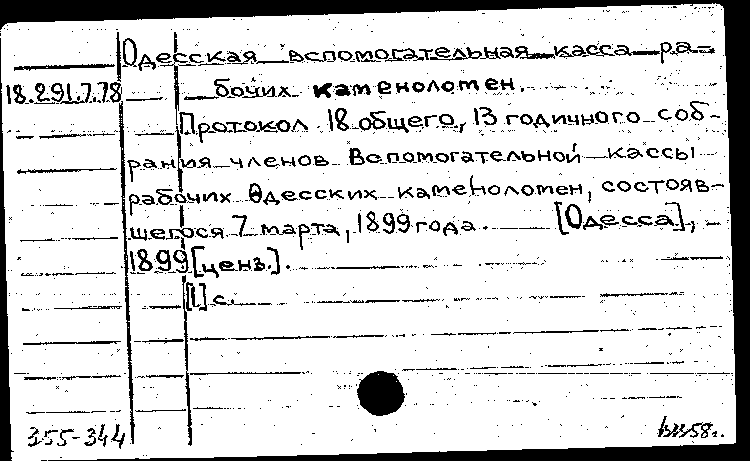 Одесская вспомогательная касса ра-
18.291.7.78 бочих каменоломен.
Протокол 18 общего, 13 годичного соб-
рания членов Вспомогательной кассы
рабочих Одесских каменоломен, состояв-
шегося 7 марта, 1899 года. [Одесса],
1899 [ценз.].
[1] с.
355-344